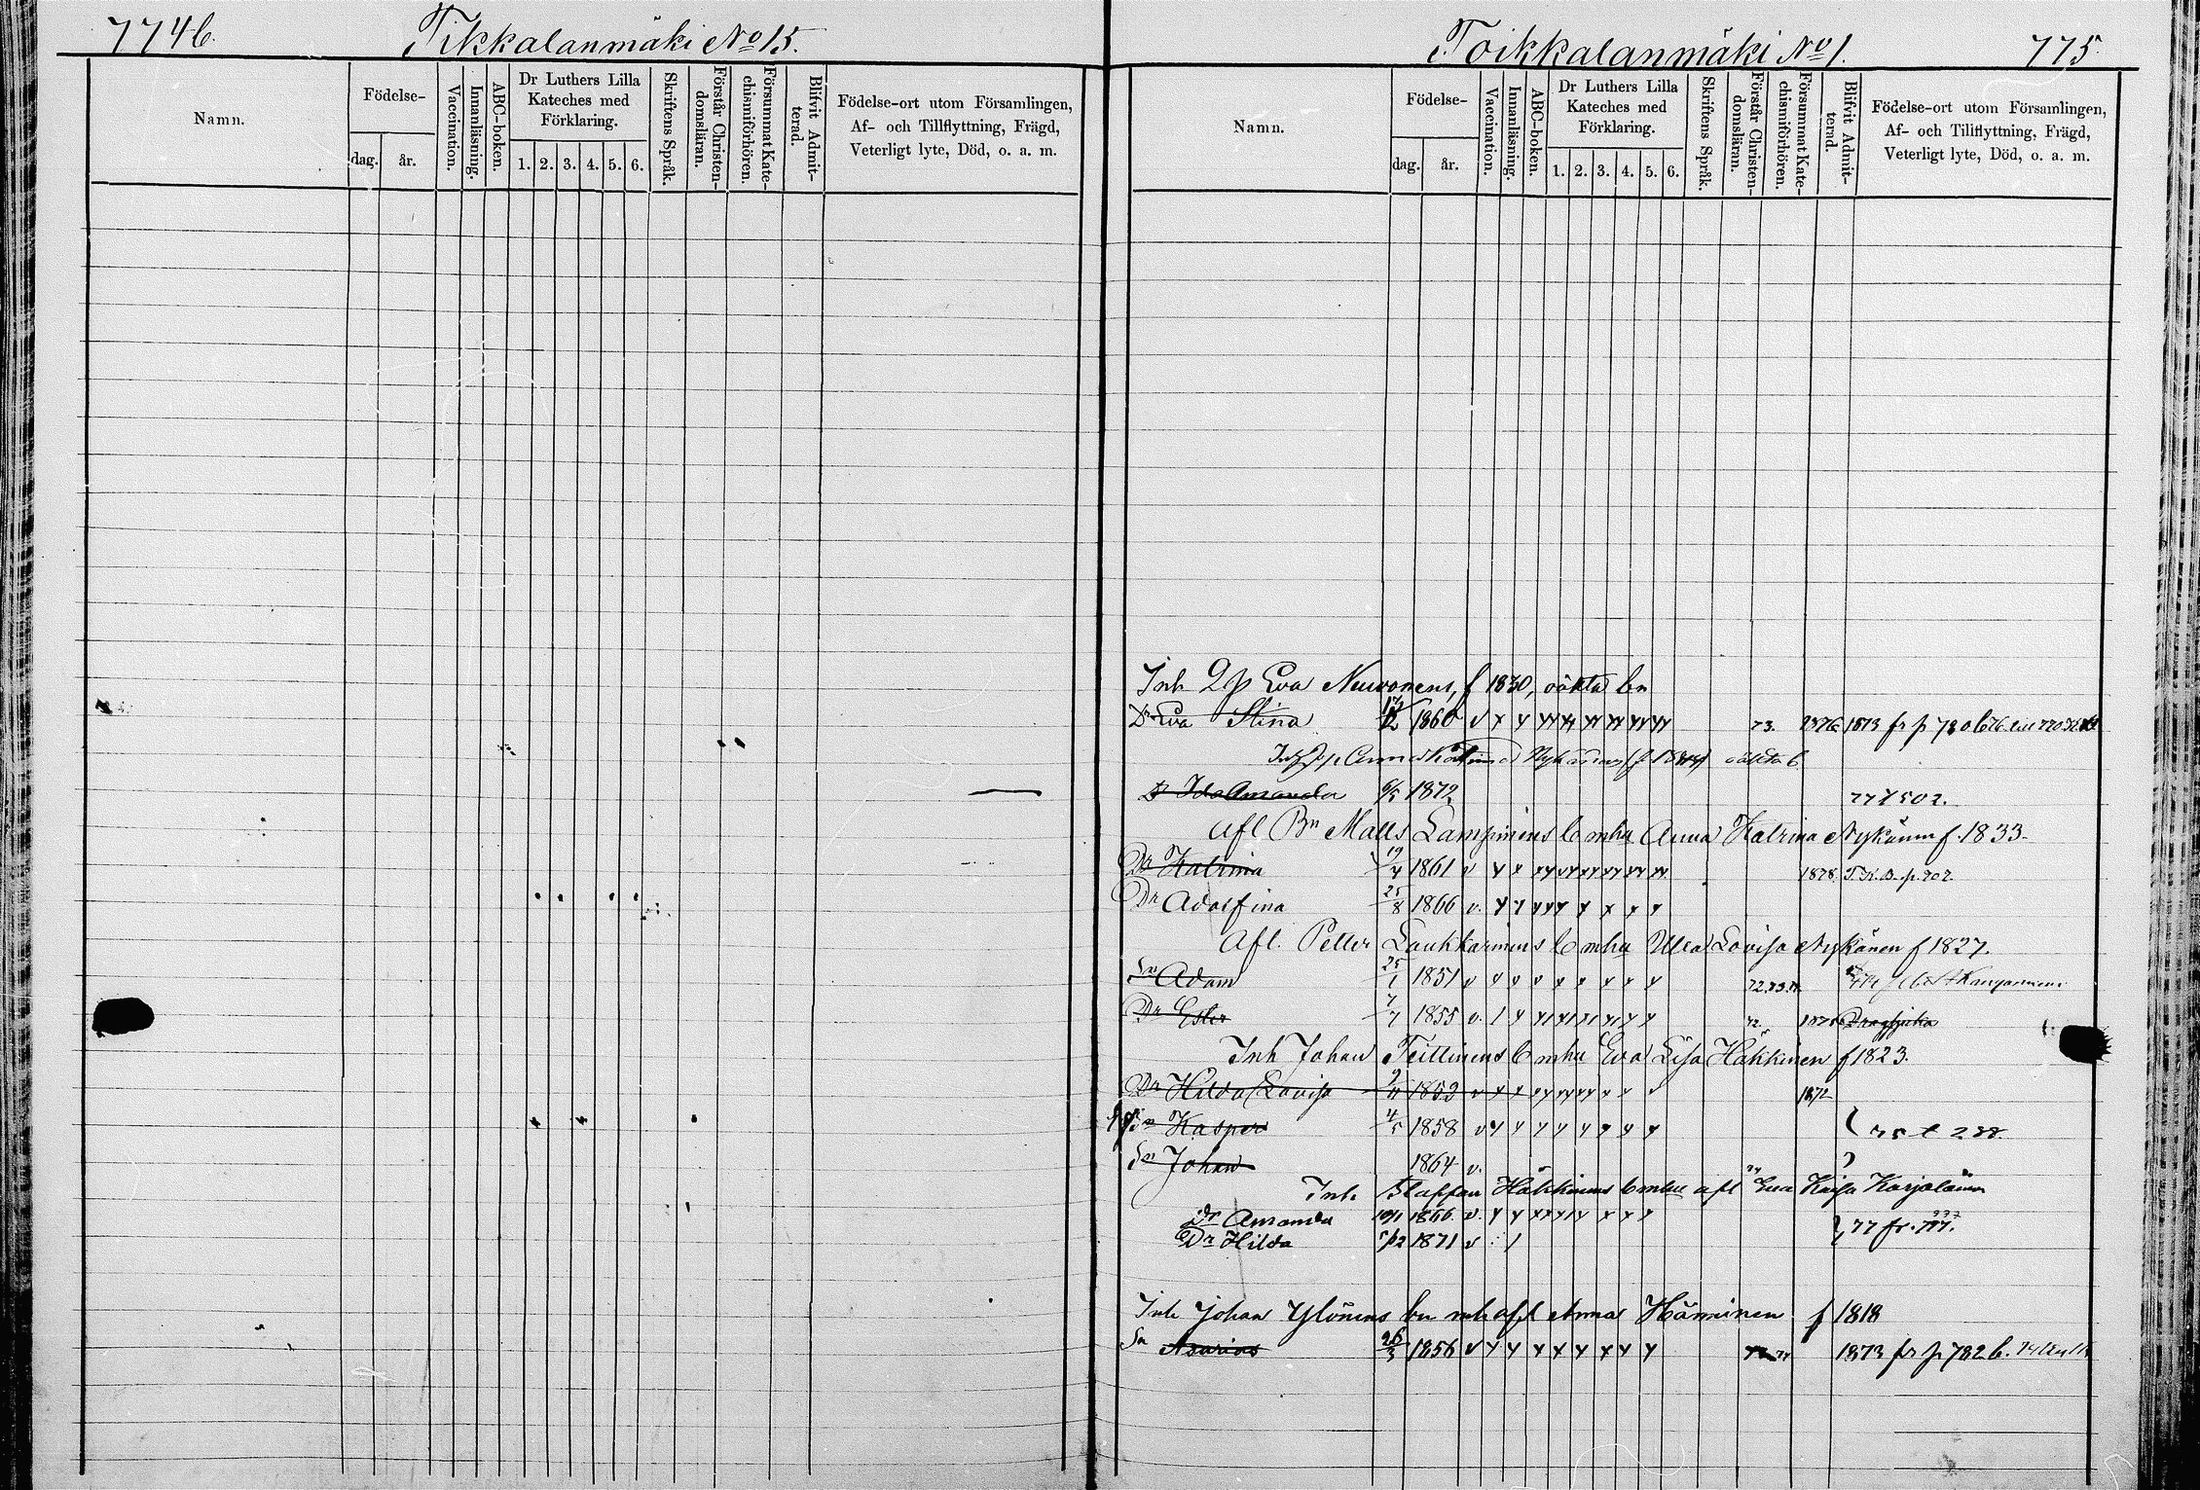 774b. Tikkalanmäki No 15.
Namn.
Födelse-
dag.
år.
Vaccination.
Innanläsning.
ABC-boken.
Dr Luthers Lilla
Kateches med
Förklaring.
1. 2. 3. 4. 5. 6.
Skriftens Språk.
Förstår Christen-
domsläran.
Försummat Kate-
chismiförhören.
Blifvit Admit-
terad.
Födelse-ort utom Församlingen,
Af- och Tillflyttning, Frägd,
Veterligt lyte, Död, o. a. m.
Toikkalanmäki No 1. 775.
Namn.
Födelse-
dag.
år.
Vaccination.
Innanläsning.
ABC-boken.
Dr Luthers Lilla
Kateches med
Förklaring.
1. 2. 3. 4. 5. 6.
Skriftens Språk.
Förstår Christen-
domsläran.
Försummat Kate-
chismiförhören.
Blifvit Admit-
terad.
Födelse-ort utom Församlingen,
Af- och Tillflyttning, Frägd,
Veterligt lyte, Död, o. a. m.
Inh Qp Eva Neuvonens, f 1830, oäkta bn
Dr Eva Stina 1860 v x y 73. 1876 1873 fr p 780
Anna Katrina Nykänens oäkta b.
D Ida Amanda 6/5 1872 77 t 502.
Afl Bn Matts Lampinens b mhu Anna Katrina Nykänen f. 1833
Dr Katrina 19/4 1861 v 1878. p. 702
Dr Adolfina 25/8 1866 v.
Afl. Petter Laukkarinens b mhu Ulla Lovisa Nykänen f 1827.
Sn Adam 25/1 1851 v
Dr Ester 7/7 1855 v. 72. 1875
Inh Johan Teittinens b mhu Eva Lisa Häkkinen f 1823.
Dr Hilda Lovisa 1853 v 1872
Sn Kasper 4/5 1858 v 75 t 288.
Sn Johan 1864 v.
Inh. Staffan Häkkinens b mhu afl Eva Kaisa Karjalainen
Dr Amanda 10/1 1866. v. 77 fr. 777.
Dr Hilda 5/12 1871 v
Inh Johan Ylönens bn mh afl Anna Hänninen f 1818
Sn Asarias 26/3 1856 v 1873 fr p 782 b.